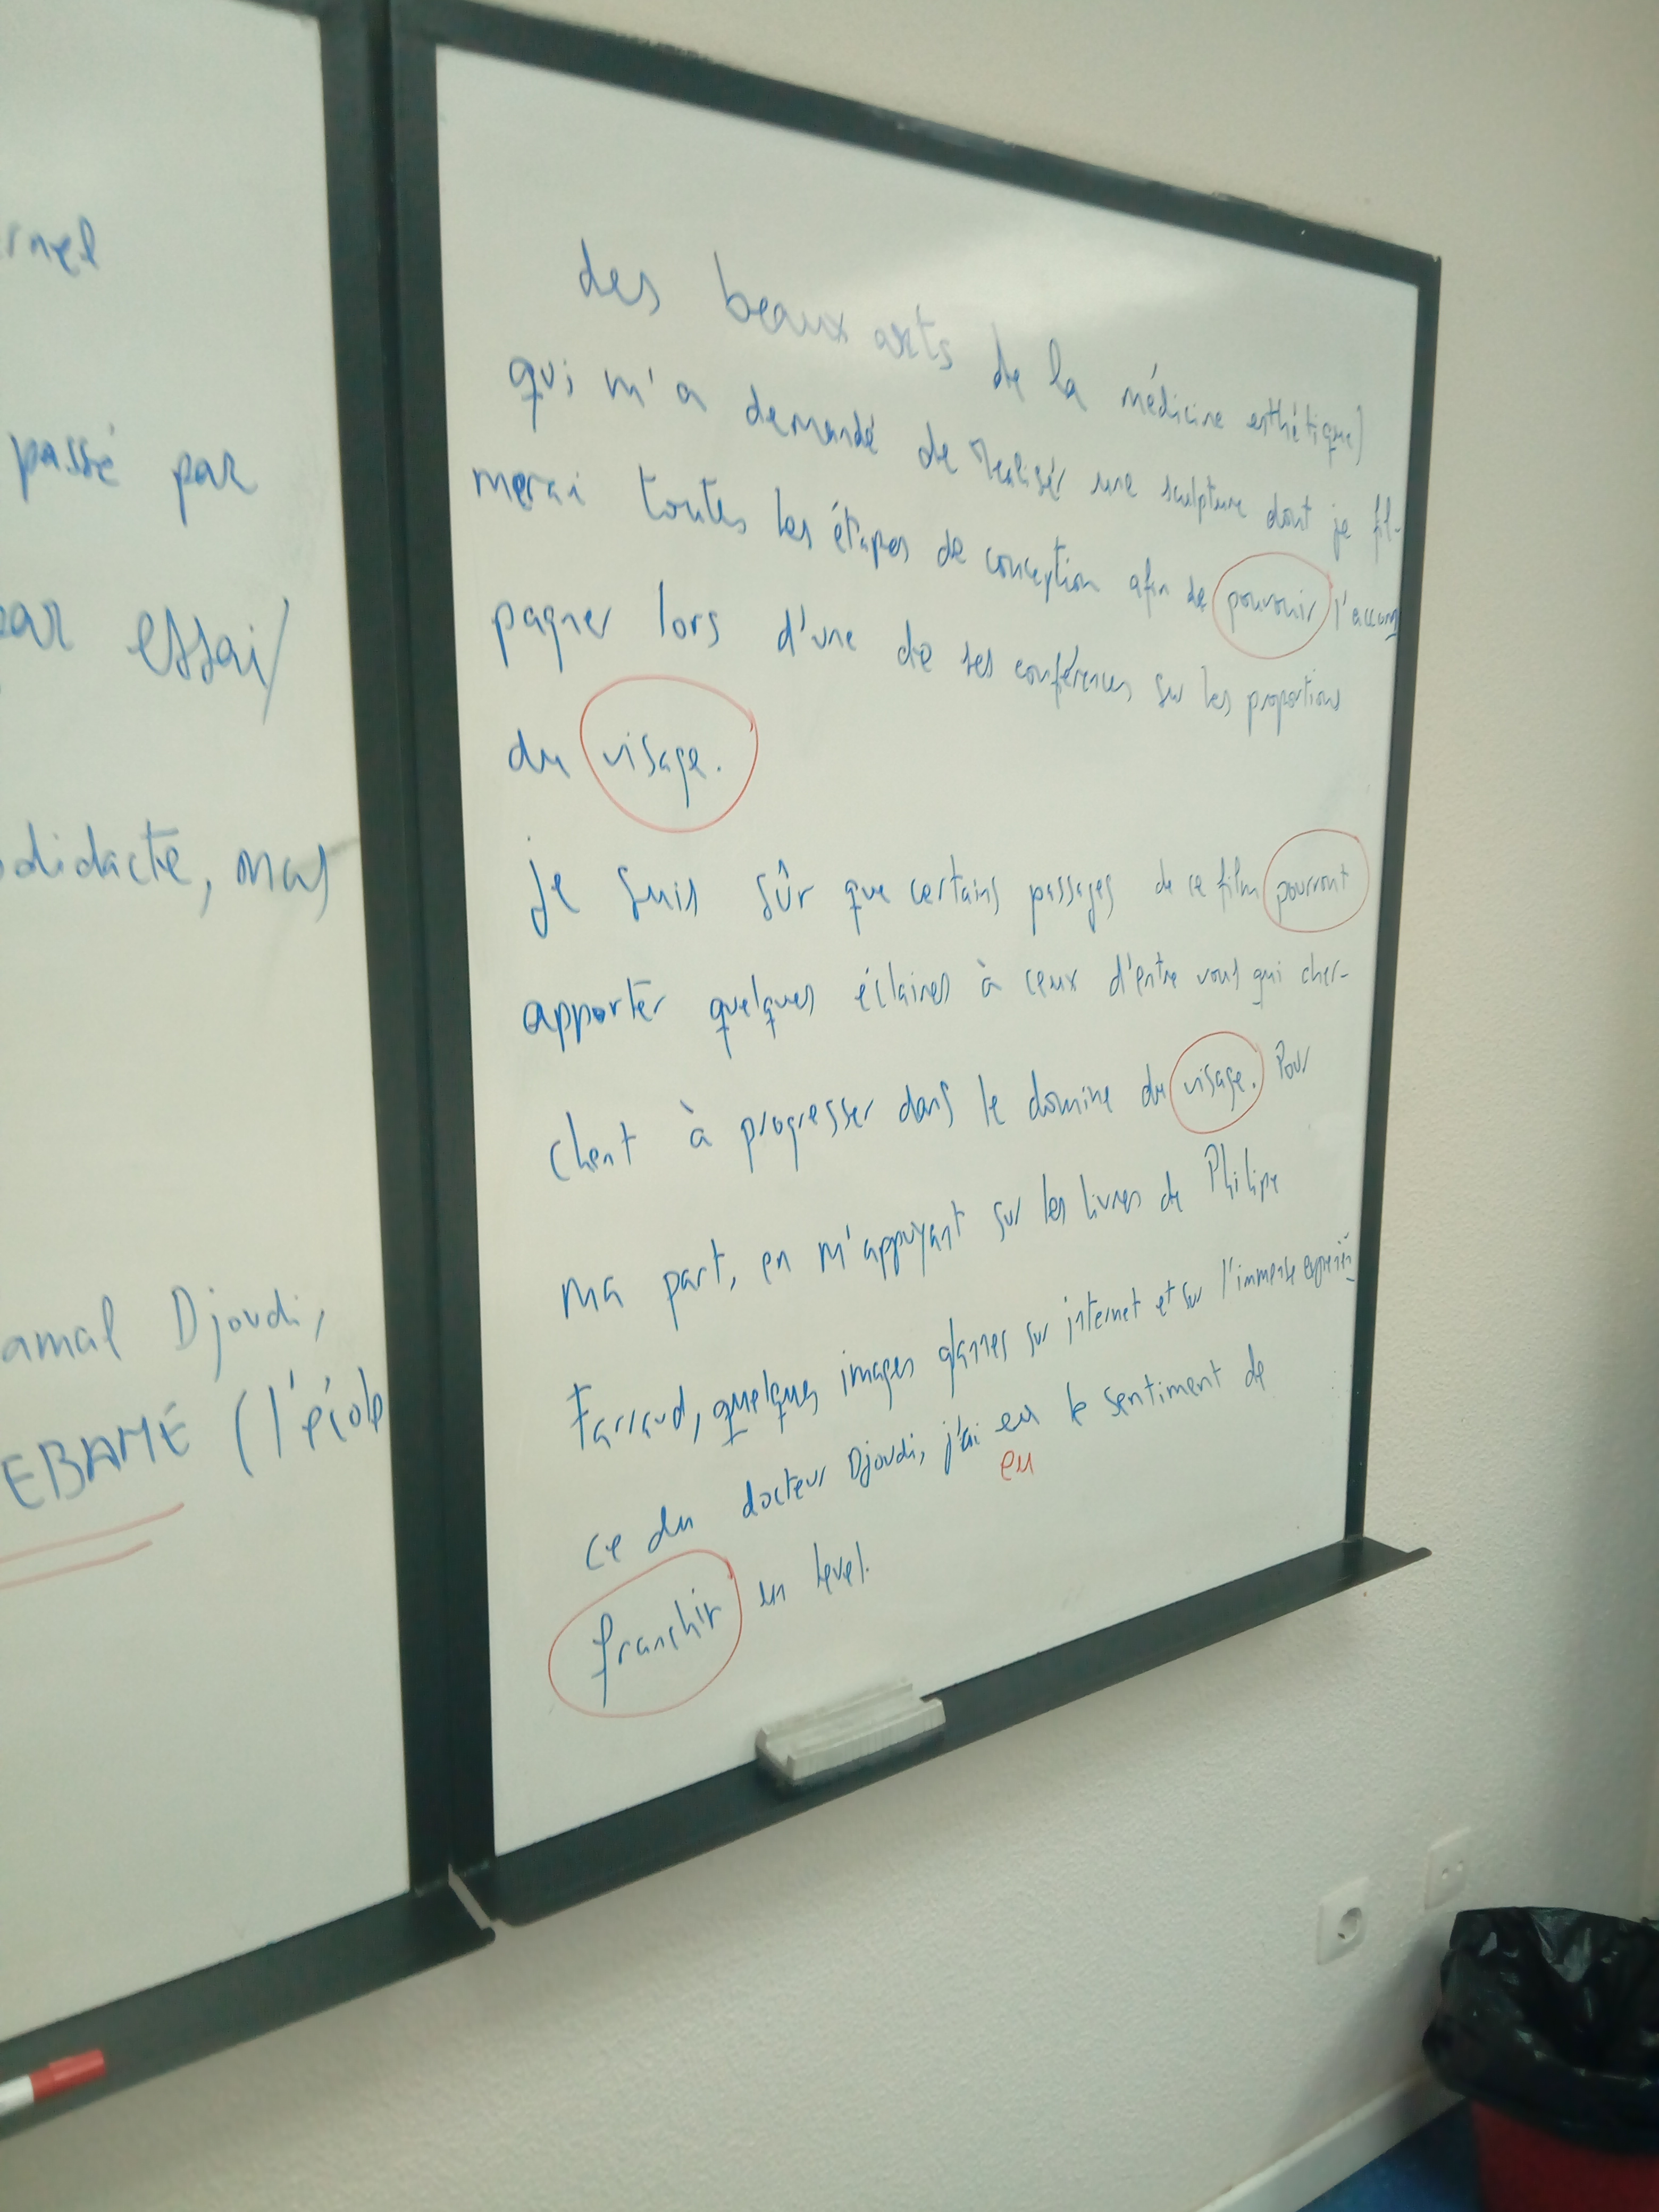 rnel
passé par
par essai/
odidacte, mas
amal Djoudi,
EBAME (l'école
des beaux arts de la médicine esthétique)
qui m'a demandé de realiser une sculpture dont je fil-
merai toutes les étapes de conception afin de pouvouir l'accom
pagner lors d'une de ses conférences sur les proportions
du visage.
je suis sûr que certains passages de ce film pourront
apporter quelques éclaires à ceux d'entre vous qui cher-
chent à progresser dans le domine du visage. Pour
ma part, en m'appuyant sur les livres de Philipe
Farraud, quelques images glannes sur internet et sur l'immense expérien
ce du docteur Djoudi, j'ai eu le sentiment de
eu
franchir un level.